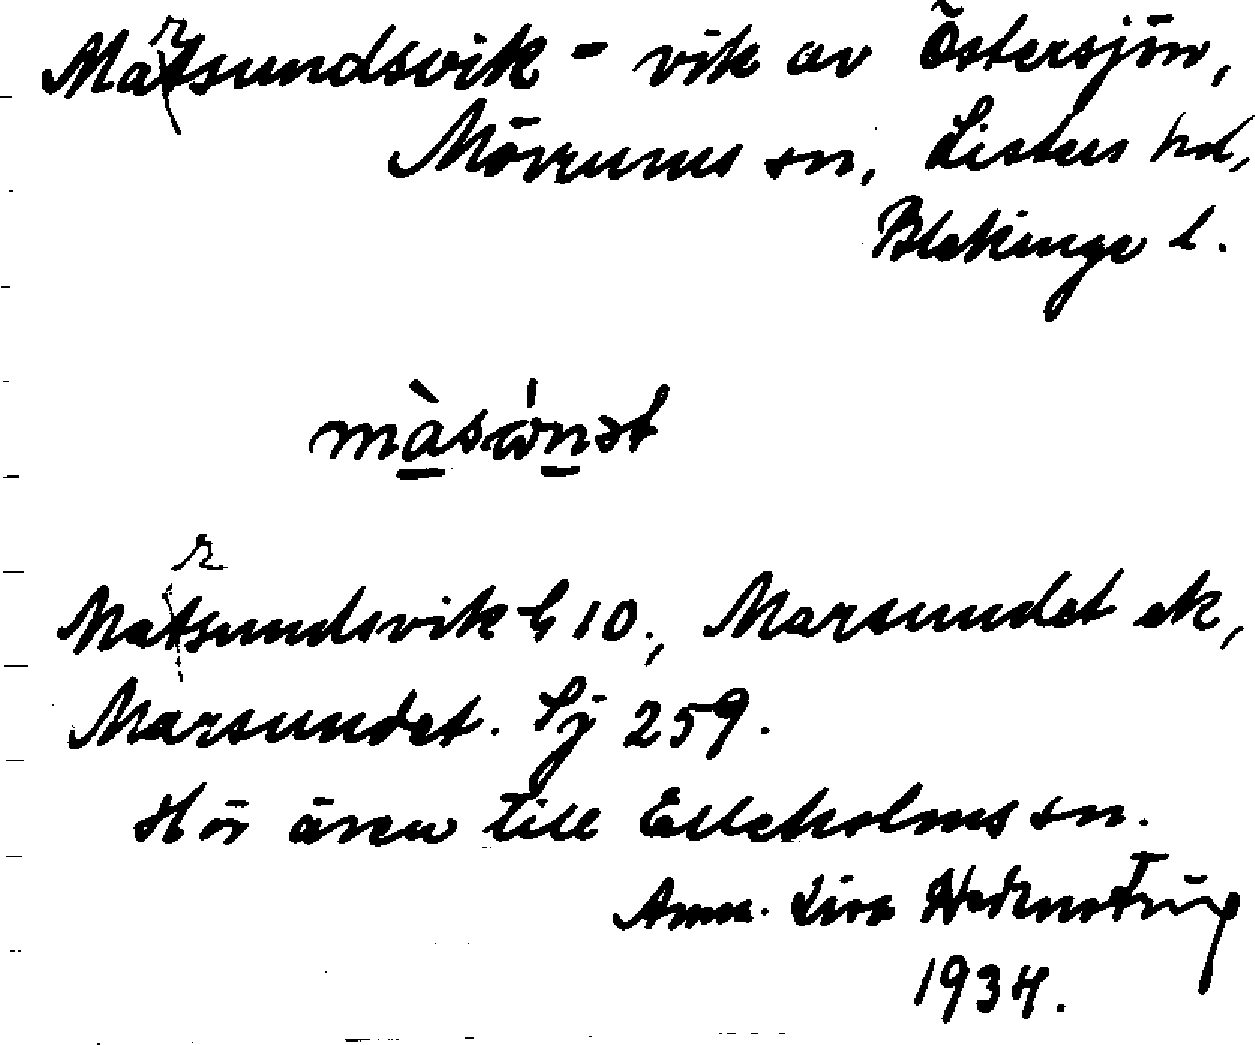 Marsundsvik - vik av Östersjön,
Mörrums sn, Listers hd,
Blekinge l.
màsẃnət
Marsundsvik G 10., Marsundet ek,
Marsundet. Sj 259.
Hör även till Elleholms sn.
Anna-Lisa
1934.